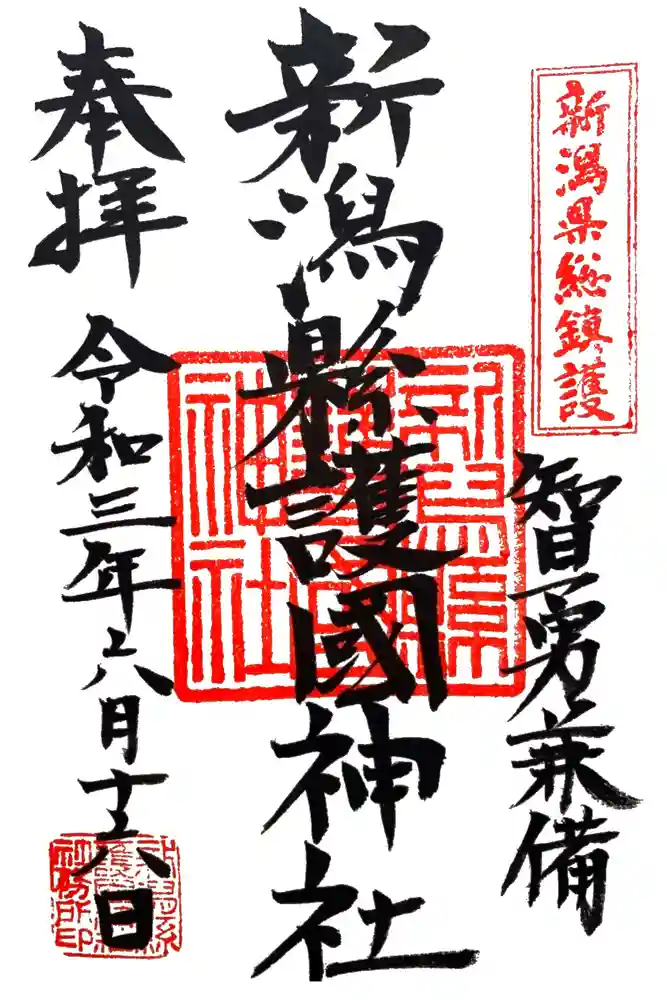 新潟県総鎮護
智勇兼備
新潟縣護國神社
新潟縣護國神社
奉拝
令和三年六月十六日
社務所印